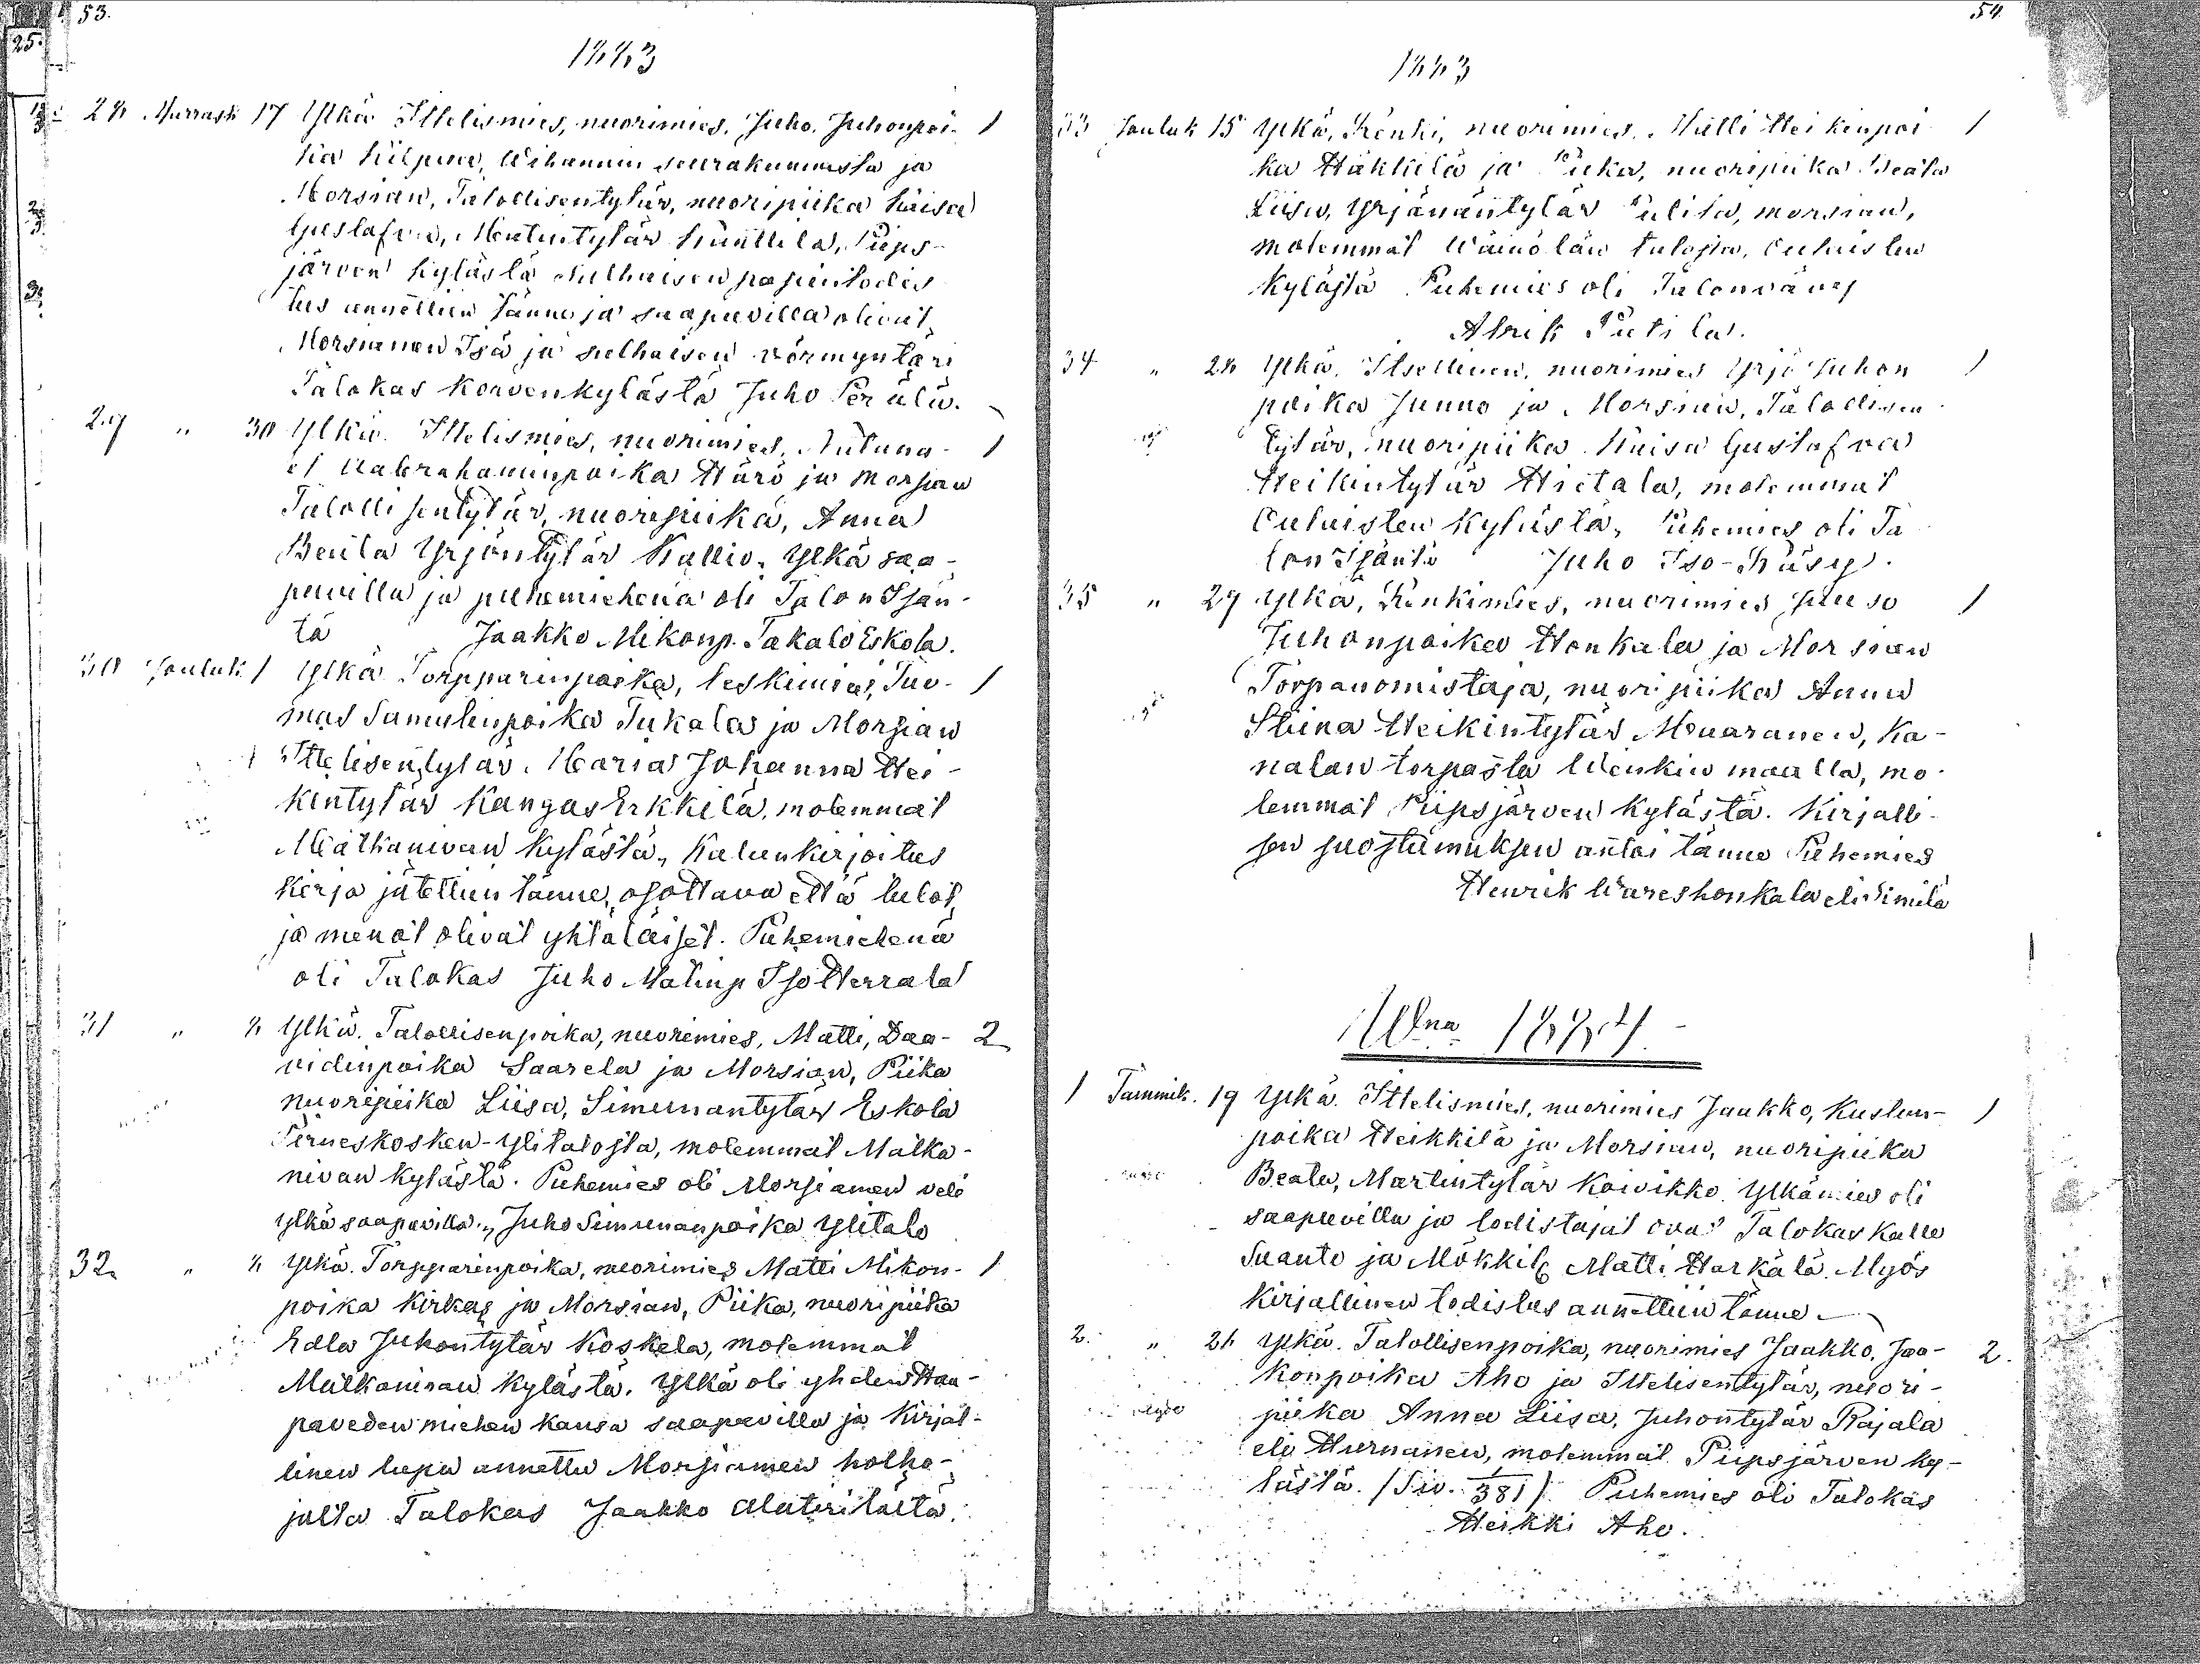 53.
25.
1883
28 Marrask 17 Ylkä Ittelismies, nuorimies, Juho Juhonpoi- 1
ka Kilpua, Wihannin seurakunnasta ja
Morsian, Talollisentytär, nuoripiika Kaisa
Gustafva, Matintytär Känttilä, Piips-
järven kylästä Sulhaisen papintodis
tus annettiin tänne ja saapuvilla olivat
Morsiamen Isä ja sulhaisen vörmyntäri
Talokas Korvenkylästä Juho Perälä.
29 " 30 Ylkä. Ittelismies, nuorimies, 1
Aabrahaminpoika Härö ja Morsian
Talollisentytär, nuoripiika, Anna
Beata Yrjöntytär Kallio. Ylkä saa-
puvilla ja puhemiehenä oli Talon Isän-
tä Jaakko Mikonp. Takalo Eskola.
30 Jouluk 1 Ylkä Torpparinpoika, leskimies, Tuo- 1
mas Samulinpoika Tukala ja Morsian
Ittelisentytär, Maria Johanna Hei-
kintytär Kangas Erkkilä, molemmat
Matkanivan kylästä, Kalunkirjoitus
kirja jätettiin tänne, osottava että tulot
ja menot olivat yhtäläiset. Puhemiehenä
oli Talokas Juho Matinp Iso Herrala
31 " 8 Ylkä. Talollisenpoika, nuorimies, Matti, Daa- 2
vidinpoika Saarela ja Morsian, Piika
nuoripiika Liisa, Simunantytär Eskola
Pirneskosken-Ylitalosta, molemmat Matka-
nivan kylästä. Puhemies oli Morsiamen veli
Ylkä saapuvilla., Juho Simunanpoika Ylitalo
32 " 8 Ylkä. Torpparinpoika, nuorimies Matti Mikon- 1
poika Kirkas ja Morsian, Piika, nuoripiika
Edla Juhontytär Koskela, molemmat
Matkanivan kylästä. Ylkä oli yhden Haa-
paveden miehen kansa saapuvilla ja kirjal-
linen lupa annettu Morsiamen holho-
jalta Talokas Jaakko Alatiritältä.
54
1883
33 Jouluk 15 Ylkä, Renki, nuorimies, Matti Heikinpoi 1
ka Häkkilä ja Piika, nuoripiika Beata
Liisa, Yrjänäntytär Pulita, morsian,
molemmat Wäinölän talosta, Oulaisten
kylästä Puhemies oli Talonväney
Abrik Putila.
34 " 28 Ylkä. Itsellinen, nuorimies Yrjö Juhon 1
poika Junno ja Morsian, Talollisen
tytär, nuoripiika Kaisa Gustafva
Heikintytär Hietala, molemmat
Oulaisten kylästä, Puhemies oli Ta
lon Isäntä Juho Iso-Käsy.
35 " 29 Ylkä, Renkimies, nuorimies 1
Juhonpoika Honkala ja Morsian
Torpanomistaja, nuoripiika Anna
Stiina Heikintytär Maaranen, Ka-
nalan torpasta Wenkin maalla, mo-
lemmat Piipsjärven kylästä. Kirjalli-
sen suostumuksen antoi tänne Puhemies
Henrik Wareshonkala eli Similä
Wna 1884
1 Tammik. 19 Ylkä. Ittelismies, nuorimies Jaakko, Kustun- 1
poika Heikkilä ja Morsian, nuoripiika
Beata, Martintytär Koivikko. Ylkämies oli
saapuvilla ja todistajat ovat Talokas Kalle
Suanto ja Mökkil. Matti Harkälä. Myös
kirjallinen todistus annettiin tänne
2. " 26 Ylkä. Talollisenpoika, nuorimies Jaakko, Jaa- 2.
konpoika Aho ja Ittelisentytär, nuori-
piika Anna Liisa, Juhontytär Rajala
eli Hurnanen, molemmat Piipsjärven ky-
lästä. (Siv. 381). Puhemies oli Talokas
Heikki Aho.